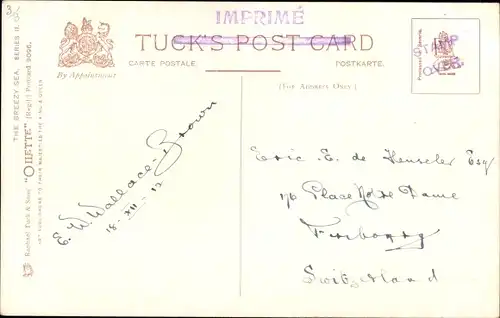 3
IMPRIMÉ
TUCK'S POST CARD
CARTE POSTALE.
POSTKARTE.
By Appointment
(FOR ADDRESS ONLY.)
STAMP
OVER.
THE BREEZY SEA. SERIES II.
Raphael Tuck & Sons' "OILETTE" [Regd.] Postcard 9095.
ART PUBLISHERS TO THEIR MAJESTIES THE KING & QUEEN
E. W. Wallace-Brown
18. XII - 12
Eric. E. de Henseler Esq
176 Place Notre Dame
Fribourg
Switzerland